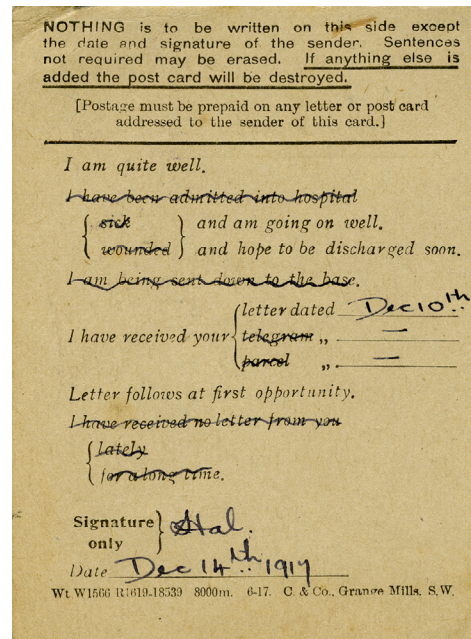 NOTHING is to be written on this side except
the date and signature of the sender. Sentences
not required may be erased. If anything else is
added the post card will be destroyed.
[Postage must be prepaid on any letter or post card
addressed to the sender of this card.]
I am quite well.
I have been admitted into hospital
sick and am going on well.
wounded and hope to be discharged soon.
I am being sent down to the base.
letter dated Dec 10th
I have received your telegram „ —
parcel „ —
Letter follows at first opportunity.
I have received no letter from you
lately
for a long time.
Signature
only Hal.
Date Dec 14th 1917
Wt W1566 R1619-18539 8000m. 6-17. C. & Co., Grange Mills, S.W.